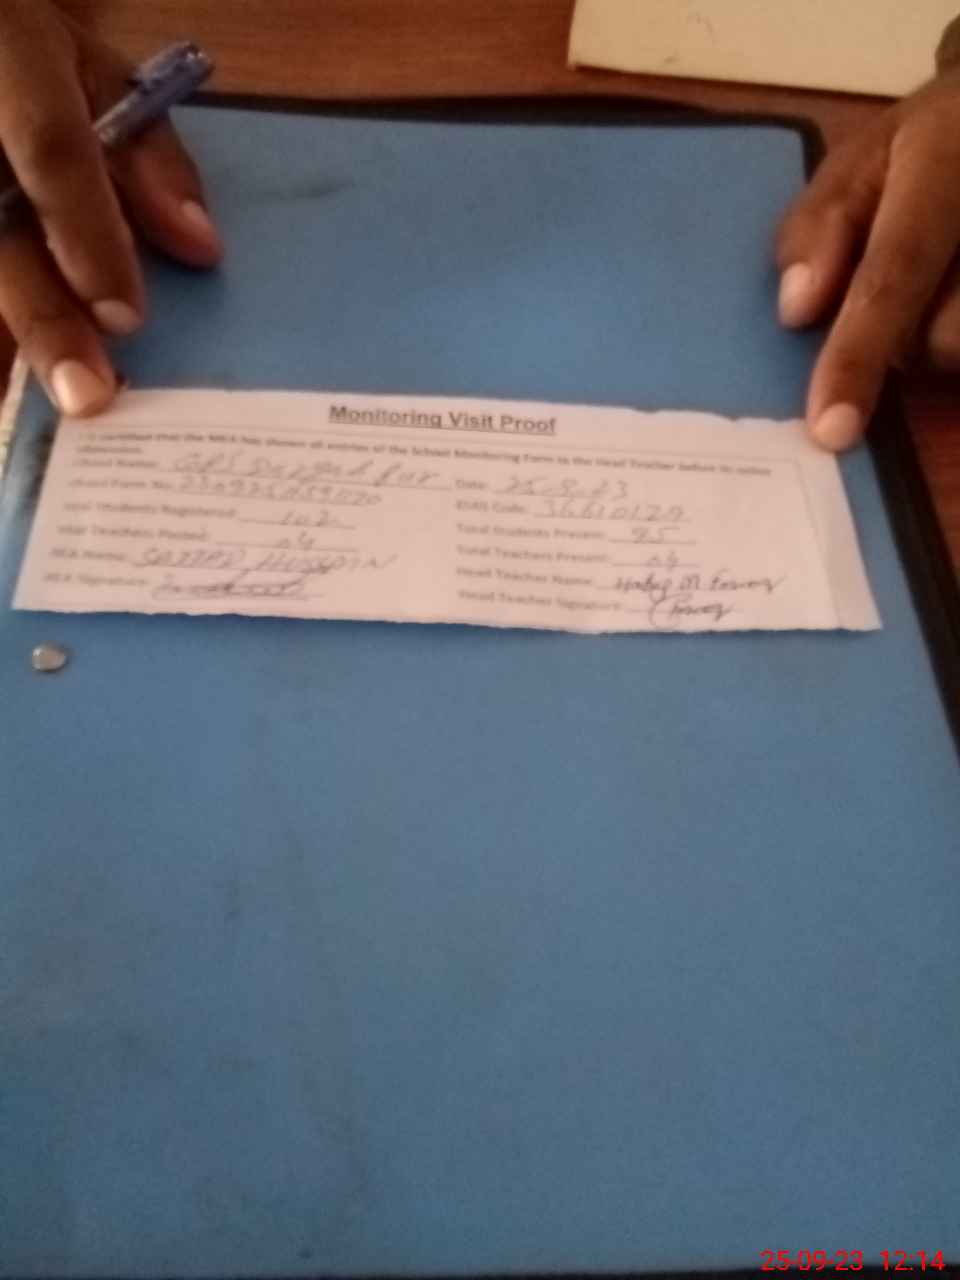 Monitoring Visit Proof
It is certified that the MEA has shown all entries of the School Monitoring Form to the Head Teacher before its online
submission.
School Name: GPS Date: 25-9-23
School Form No: EMIS Code: 36610129
Total Students Registered: 102 Total Students Present: 95
Total Teachers Posted: 04 Total Teachers Present: 04
MEA Name: SAJJAD HUSSAIN Head Teacher Name: Hafiz M
MEA Signature: Head Teacher Signature:
25-09-23 12:14